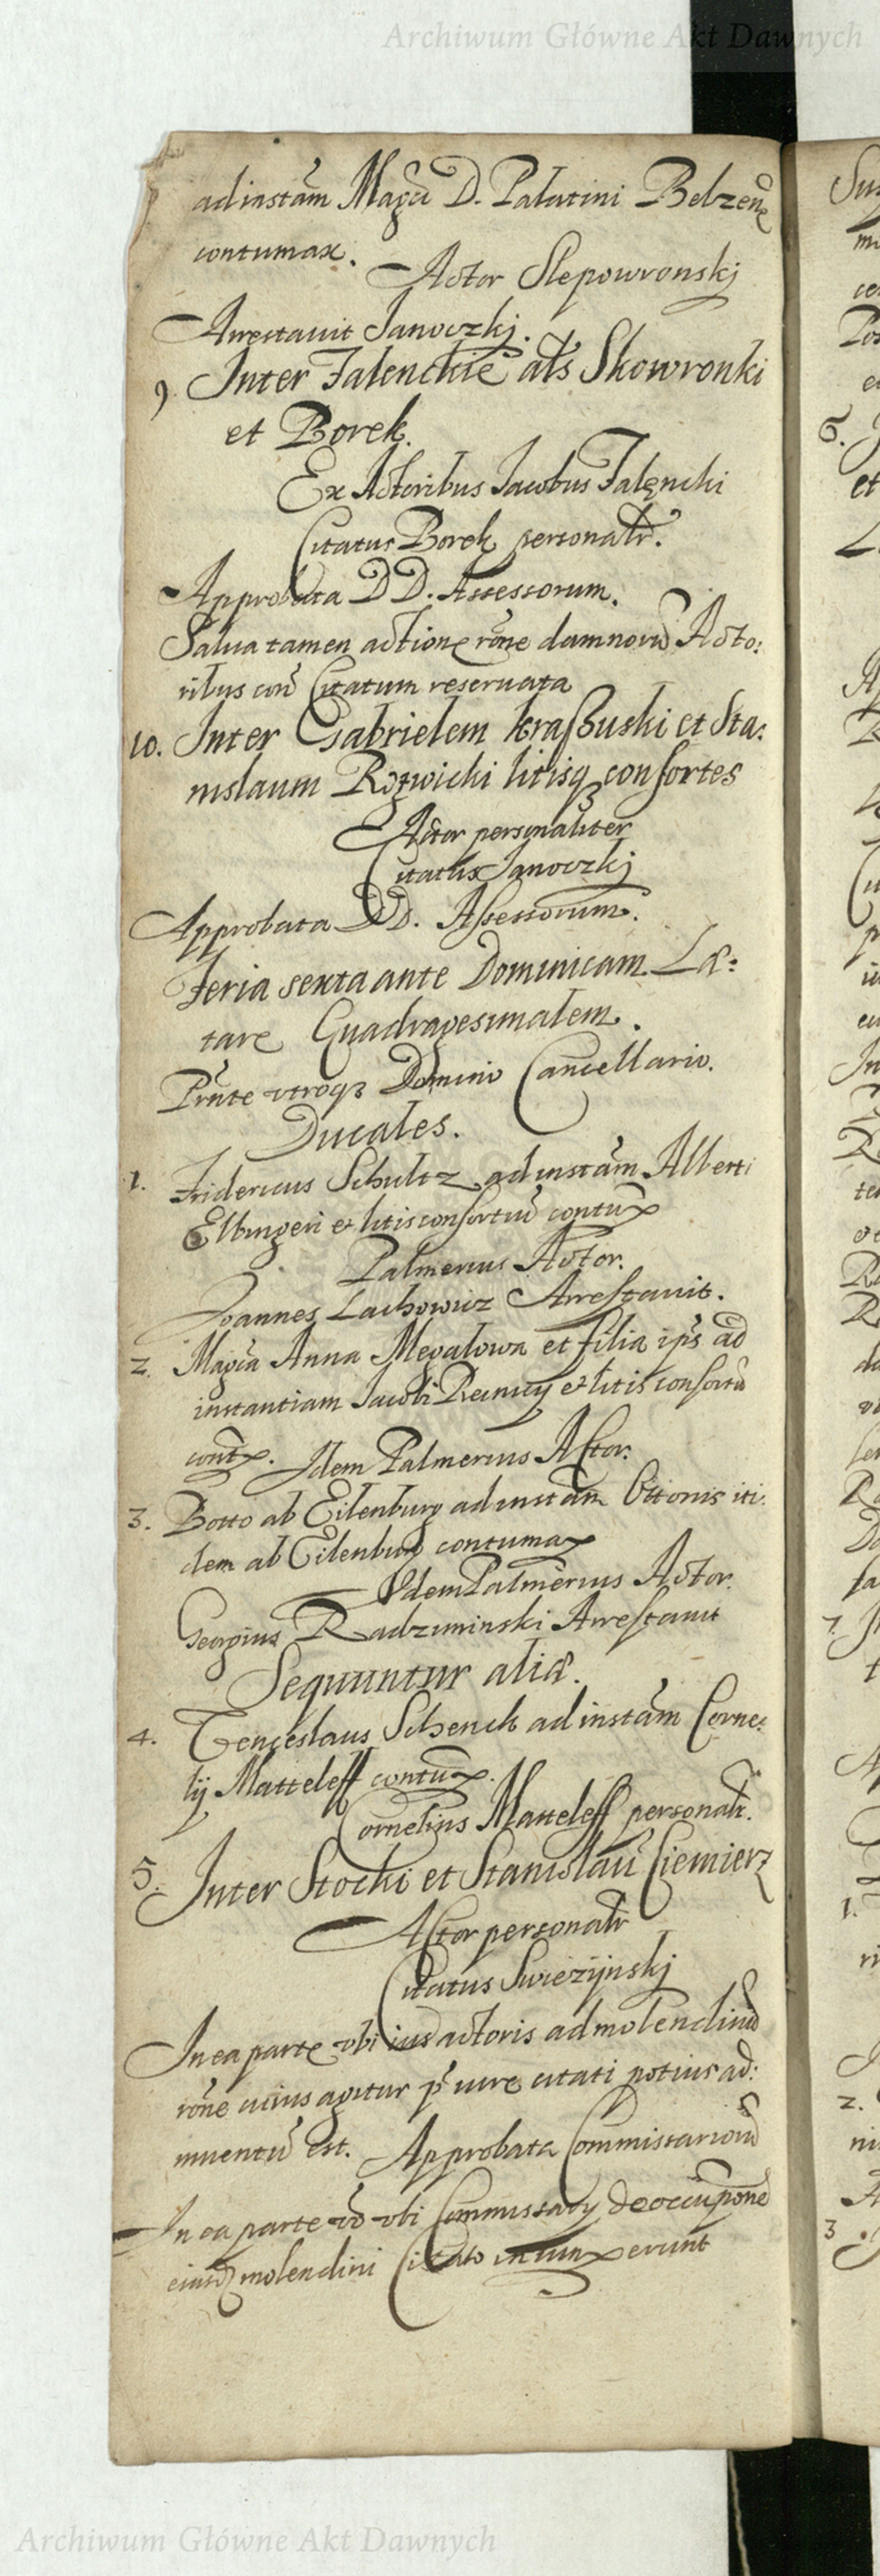 Archiwum Główne Akt Dawnych
ad instam̃ Magci D. Palatini Belzens̃
contumax.
Actor Slepowronskj
Arrestauit Janoczkj.
9. Inter Falenckie als Skowronki
et Borek.
Ex Actoribus Jacobus Falęncki
Citatus Borek personalr̃.
Approbata DD. Assessorum.
Salua tamen actione rõne damnorũ Acto:
ribus con͂ Citatum reseruata
10. Inter Gabrielem kraſsuski et Sta:
nislaum Rożwicki litisqʒ conſortes
Actor personaliter
Citatus Janoczkj
Approbata DD. Aſsessorum.
Feria sexta ante Dominicam Læ:
tare Quadragesimalem.
Pñnte vtroqʒ Domino Cancellario.
Ducales.
1. Fridericus Schultz ad instam̃ Alberti
Elbingeri et litisconſortiũ contũx
Palmerius Actor.
Joannes Lachowicz Arreſtauit.
2. Magca Anna Megalowa et filia ips ad
instantiam Jacobi et litis conſortũ
contx. Idem Palmerius Actor.
3. Botto ab Eilenburg ad instam̃ Ottonis iti
dem ab Eilenburg contumax
Idem Palmerius Actor.
Georgius Radziminski Arreſtauit
Sequuntur aliæ.
4. Venceslaus Schenck ad instam̃ Corne:
lij Matteleff contũx.
Cornelius Matteleff personalr̃.
5. Inter Stocki et Stanislaũ Ciemierz
Actor personalr̃
Citatus Swiezijnskj
In ea parte vbi ius actoris ad molendinũ
rõne cuius agitur p̃ iure citati potius ad:
inuentũ est. Approbata Commissariorũ
In ea parte vo vbi Commissary de occupõne
eiusdʒ molendini Citato iniunxerunt
Archiwum Główne Akt Dawnych